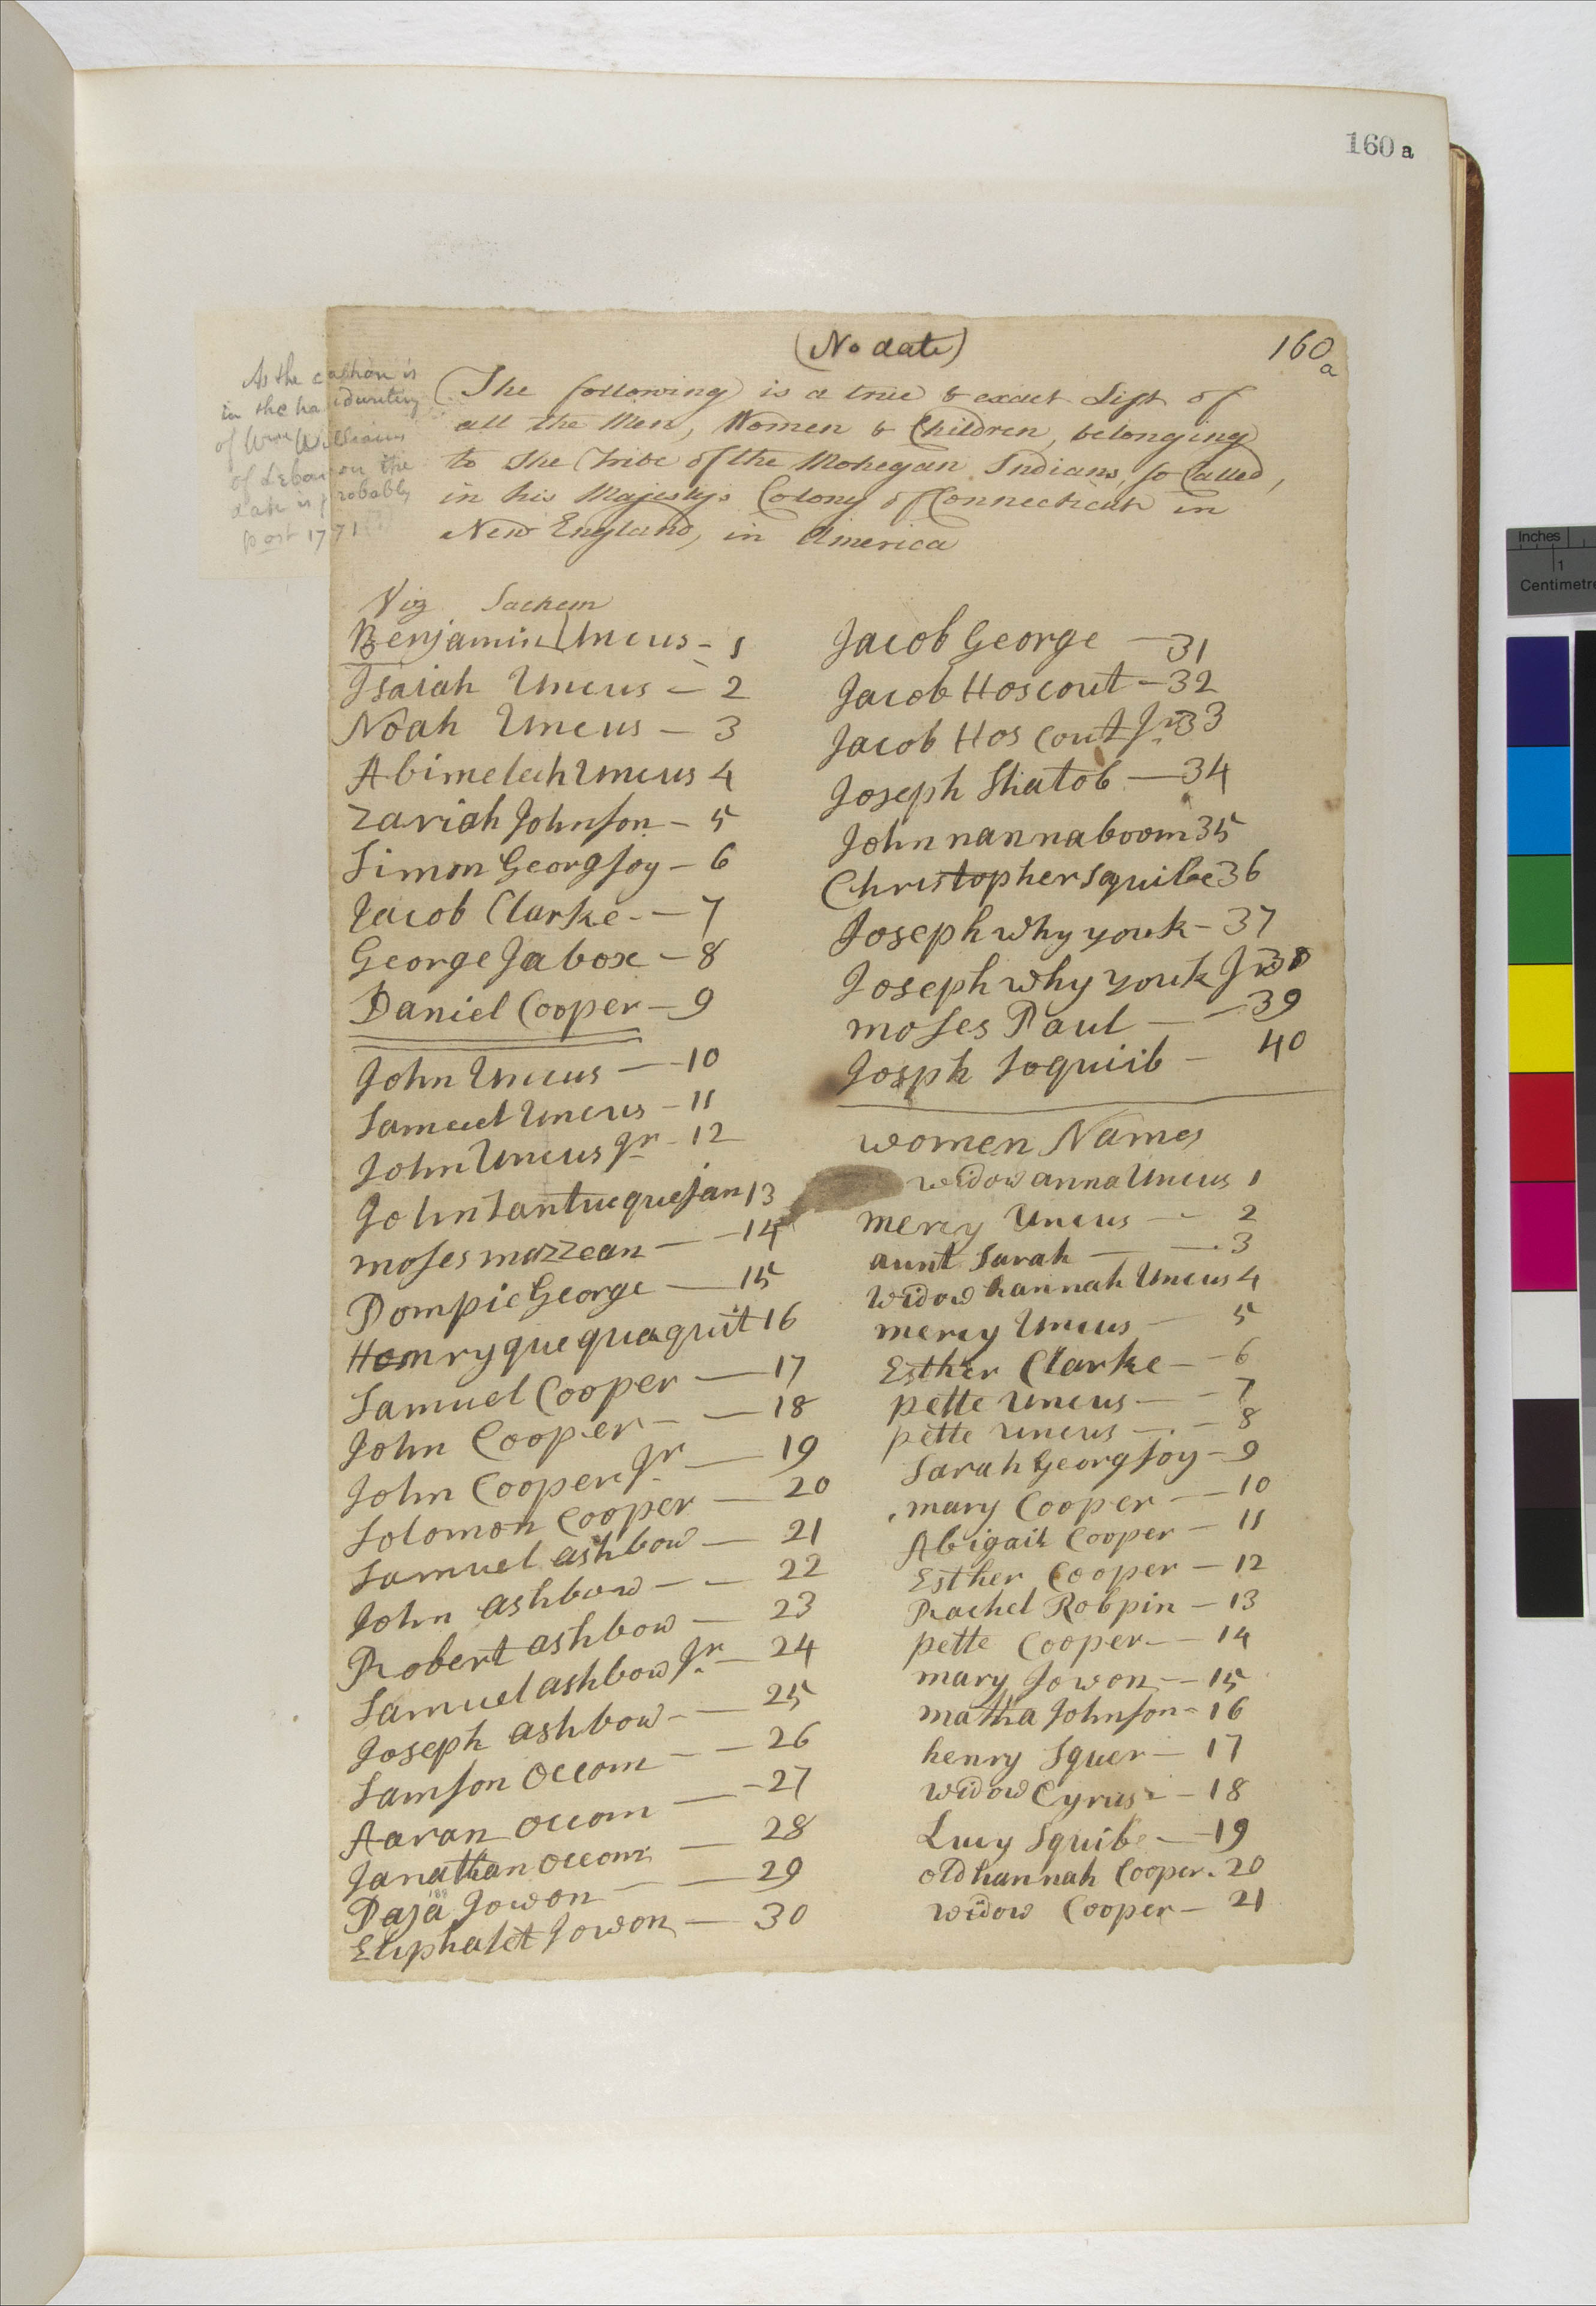 160 a
(No date)
160
a
As the caption is
in the handwriting
of Wm Williams
of Lebanon the
date is probably
post 1771
The following is a true & exact List of
all the Men, Women & Children, belonging
to the Tribe of the Mohegan Indians, so Called,
in his Majesty's Colony of Connecticut in
New England, in America
Viz Sachem
Benjamin Uncus - 1
Isaiah Uncus - 2
Noah Uncus - 3
Abimelech Uncus 4
Zariah Johnson - 5
Simon Georgjoy - 6
Jacob Clarke - 7
George Jabox - 8
Daniel Cooper - 9
John Uncus - 10
Samuel Uncus - 11
John Uncus Jr - 12
John Tantuquejan 13
moses mazzean - 14
Pompie George - 15
Henry quequaquit 16
Samuel Cooper - 17
John Cooper - 18
John Cooper Jr - 19
Solomon Cooper - 20
Samuel ashbow - 21
John ashbow - 22
Robert ashbow - 23
Samuel ashbow Jr - 24
Joseph ashbow - 25
Samson Occom - 26
Aaran Occom - 27
Janathan Occom - 28
Paja Jowon - 29
Eliphalet Jowon - 30
Jacob George - 31
Jacob Hoscout - 32
Jacob Hoscout Jr 33
Joseph Shatob - 34
John nannaboom 35
Christopher Squibe 36
Joseph Whyyouk - 37
Joseph whyyouk Jr 38
moses Paul - 39
Josph Soquiib - 40
women Names
widow anna Uncus 1
mercy Uncus - 2
aunt Sarah - 3
Widow hannah Uncus 4
mercy Uncus - 5
Esther Clarke - 6
pette Uncus - 7
pette uncus - 8
Sarah Georgjoy - 9
mary Cooper - 10
Abigail Cooper - 11
Esther Cooper - 12
Rachel Robpin - 13
pette Cooper - 14
mary Jowon - 15
matha Johnson - 16
henry Squer - 17
Widow Cyrus - 18
Lucy Squibe - 19
old hannah Cooper. 20
widow Cooper - 21
Inches
1
Centimetre